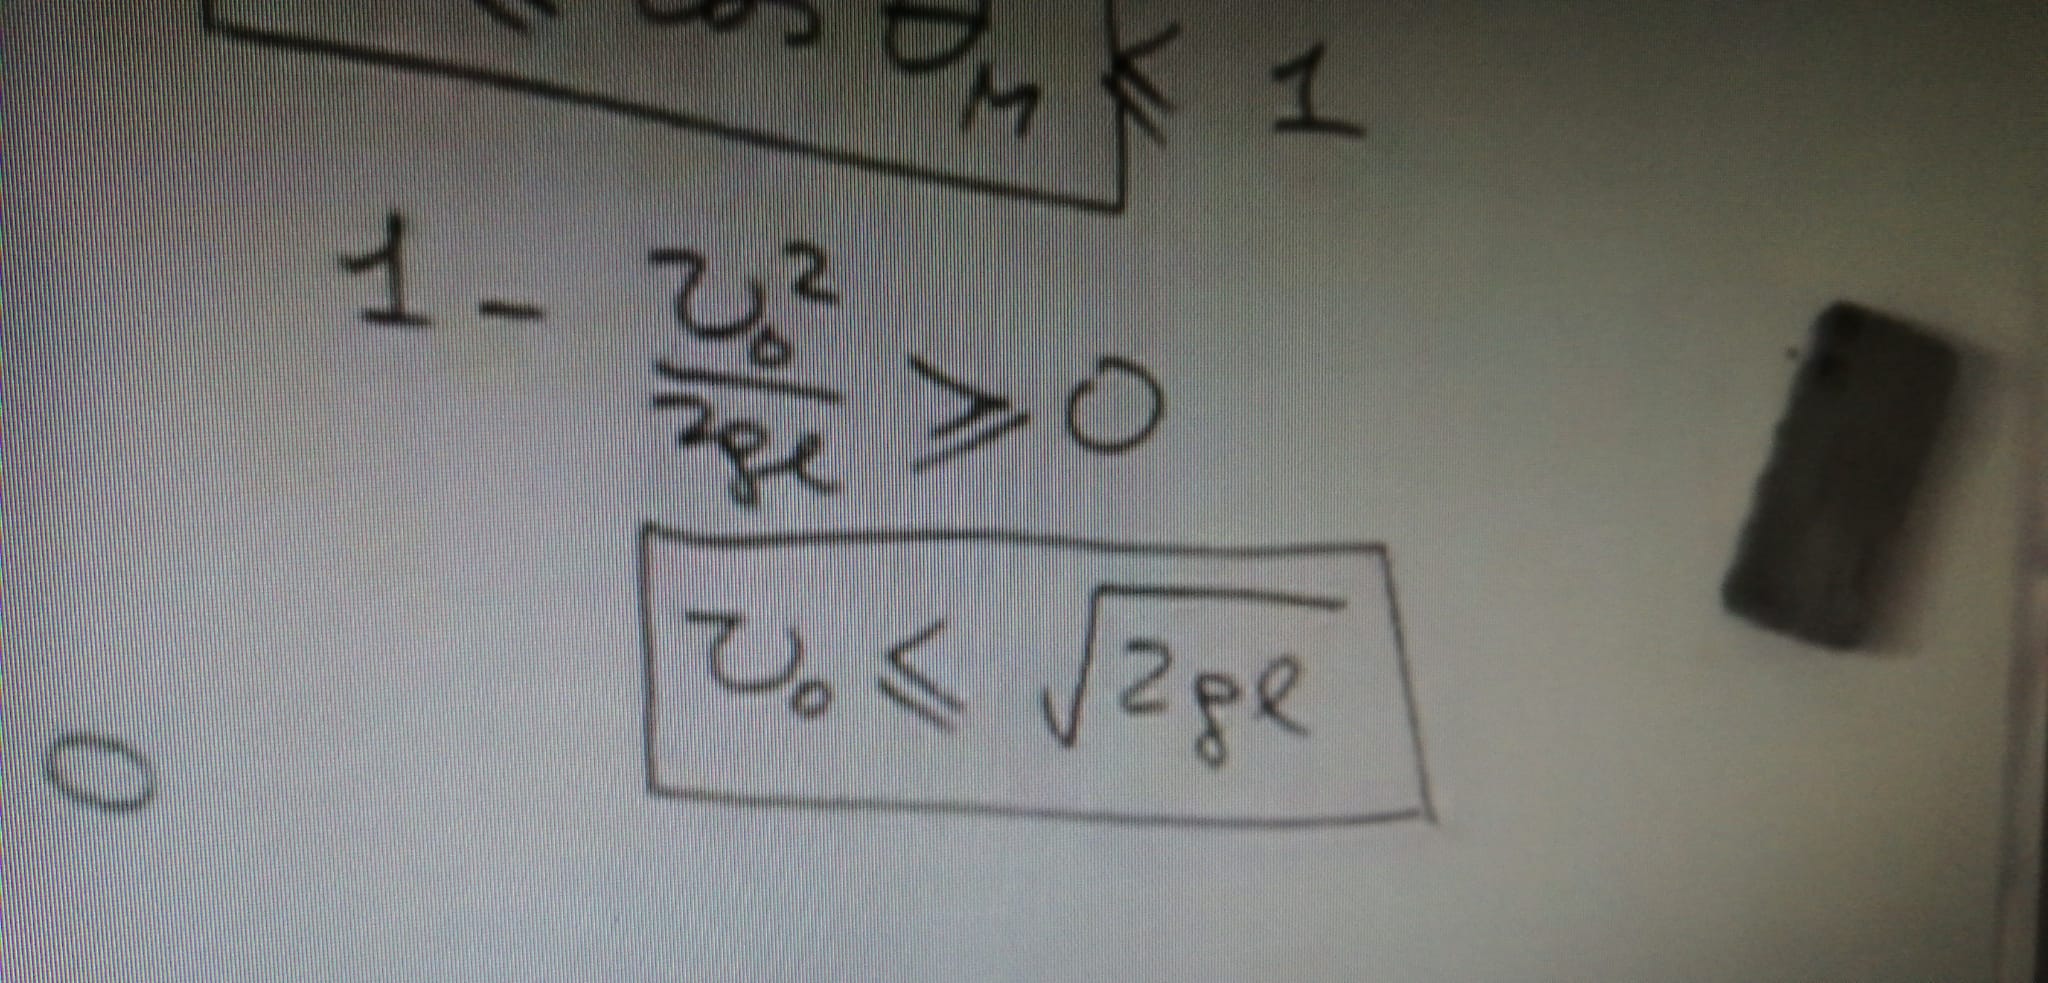 ≤ cos θ_M ≤ 1
1 - v₀²/2gl ≥ 0
v₀ ≤ √2gl
0